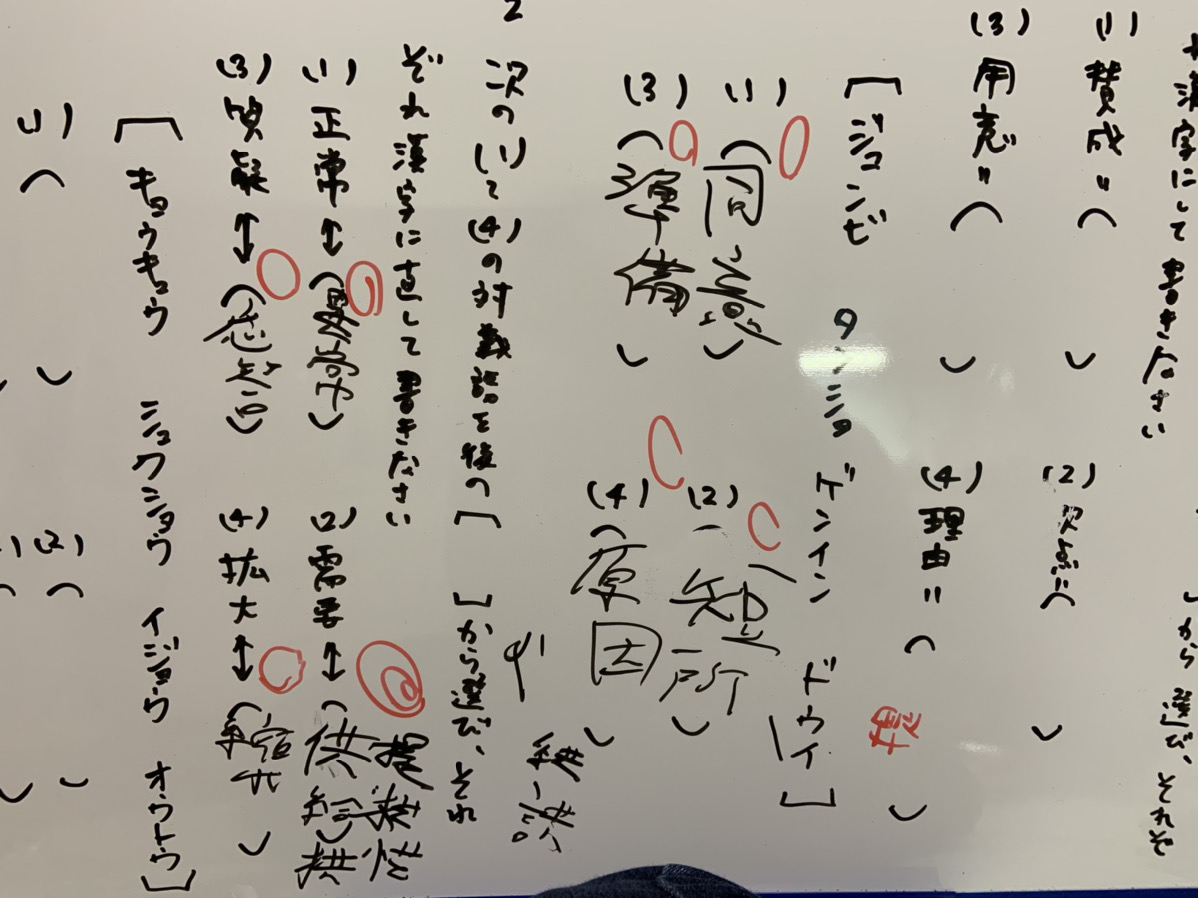 漢字にして書きなさい
から選び、それぞ
(1) 賛成=( )
(2) 欠点=( )
(3) 用意=( )
(4) 理由=( )
[ジュンビ タンショ ゲンイン ドウイ]
(1) (同意)
(2) (短所
(3) (準備)
(4) (原因
2
次の(1)て(4)の対義語を後の[ ]から選び、それ
ぞれ漢字に直して書きなさい
(1) 正常↔(異常)
(2) 需要↔(供給
(3) 質疑↔(応答)
(4) 拡大↔(縮
[キョウキュウ シュクショウ イジョウ オウトウ]
(1) (
(2) (